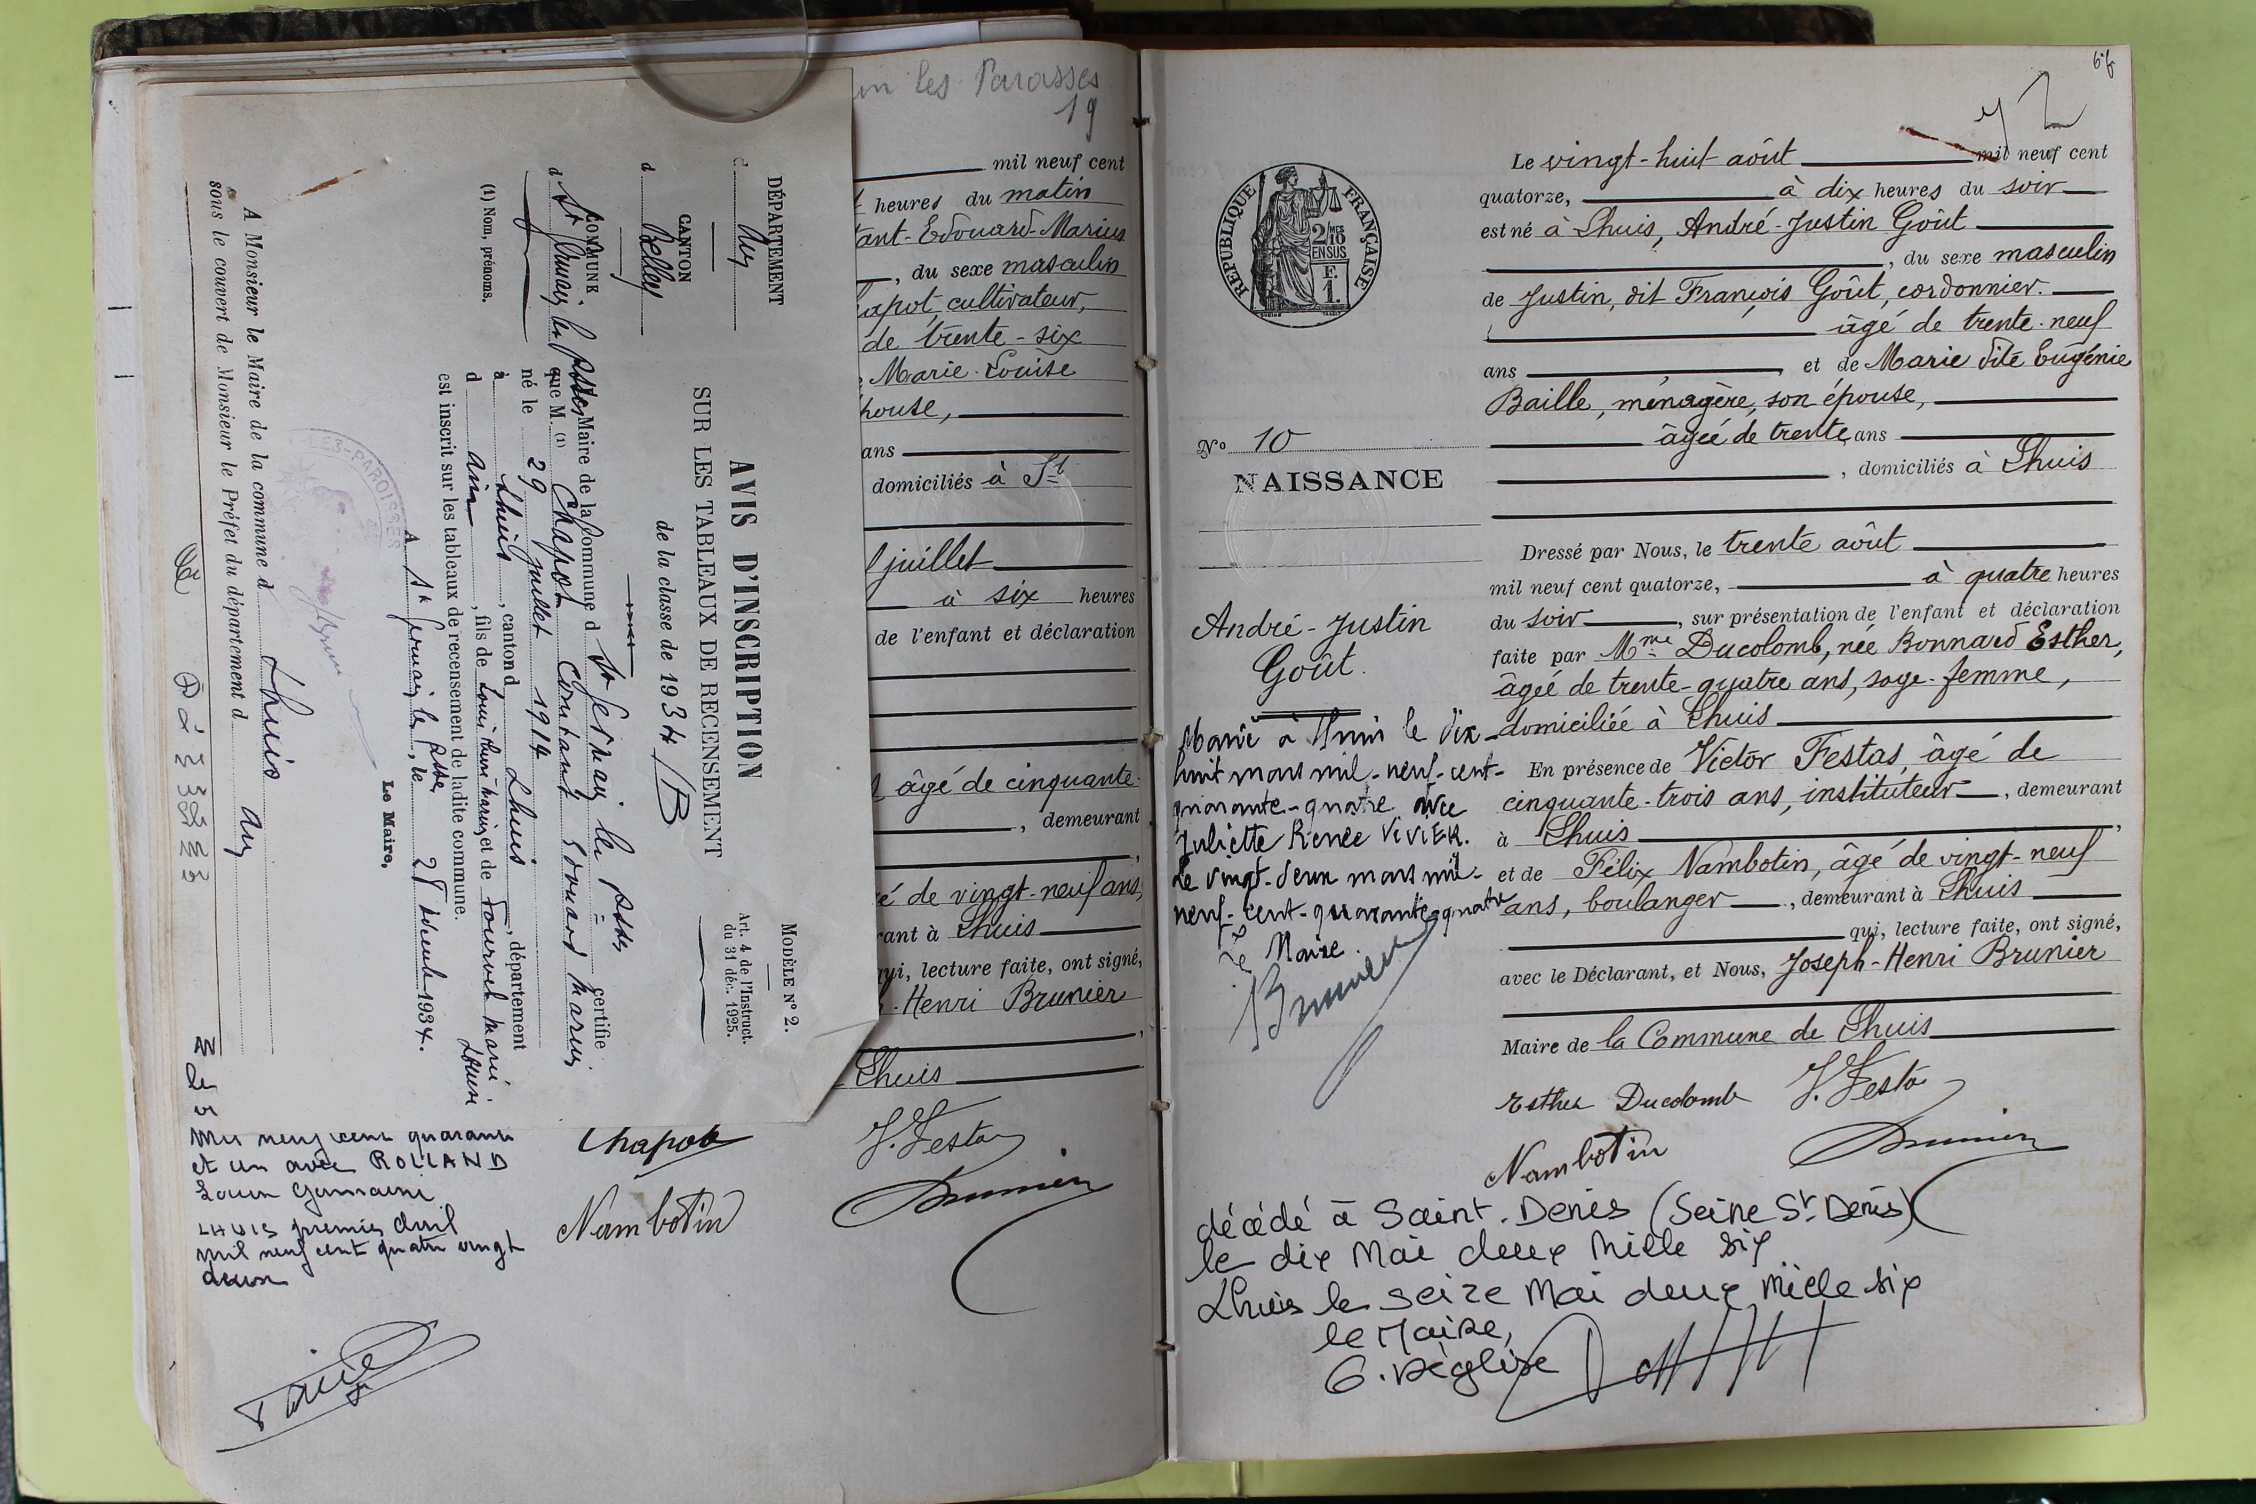 les Parasses
19
mil neuf cent
heures du matin
tant-Edouard-Marius
, du sexe masculin
apot, cultivateur,
de trente-six
Marie-Louise
pouse,
ans
domiciliés à St
juillet
à six heures
de l'enfant et déclaration
âgé de cinquante-
, demeurant
é de vingt-neuf ans,
rant à Lhuis
qui, lecture faite, ont signé,
-Henri Brunier
Lhuis
Chapot
J. Festa
Nambotin
Brunier
mil neuf cent quarante
et un avec ROLLAND
LHUIS premier avril
mil neuf cent quatre vingt
deux
MODÈLE N° 2.
Art. 4 de l'Instruct.
du 31 déc. 1925.
DÉPARTEMENT
d Ain
CANTON
d Belley
COMMUNE
d St Germain les Pses
AVIS D'INSCRIPTION
SUR LES TABLEAUX DE RECENSEMENT
de la classe de 1934/B
Maire de la Commune d St Germain les certifie
que M. (1) Chapot Constant Edouard Marius
né le 29 juillet 1914
à Lhuis, canton d Lhuis, département
d Ain, fils de Louis et de Tournel Marie
Louise
est inscrit sur les tableaux de recensement de ladite commune.
(1) Nom, prénoms.
A St Germain les, le 28 1934.
Le Maire,
A Monsieur le Maire de la commune d Lhuis
sous le couvert de Monsieur le Préfet du département d Ain
72
RÉPUBLIQUE FRANÇAISE
2/10
EN SUS
F.
1.
N° 10
NAISSANCE
André-Justin
Goût.
Le vingt-huit août mil neuf cent
quatorze, à dix heures du soir
est né à Lhuis, André-Justin Goût
, du sexe masculin
de Justin, dit François Goût, cordonnier.
âgé de trente-neuf
ans et de Marie dite Eugénie
Baille, ménagère, son épouse,
âgée de trente ans
, domiciliés à Lhuis
Dressé par Nous, le trente août
mil neuf cent quatorze, à quatre heures
du soir, sur présentation de l'enfant et déclaration
faite par Mme Ducolomb, née Bonnard Esther,
âgée de trente-quatre ans, sage-femme,
domiciliée à Lhuis
En présence de Victor Festas, âgé de
cinquante-trois ans, instituteur, demeurant
à Lhuis,
et de Félix Nambotin, âgé de vingt-neuf
ans, boulanger, demeurant à Lhuis
qui, lecture faite, ont signé,
avec le Déclarant, et Nous, Joseph-Henri Brunier
Maire de la Commune de Lhuis
Marié à Lhuis le dix-
huit mars mil-neuf-cent-
quarante-quatre avec
Juliette Renée VIVIER.
Le vingt-deux mars mil-
neuf-cent-quarante-quatre
Le Maire.
Brunier
Esther Ducolomb J. Festa
Nambotin Brunier
décédé à Saint-Denis (Seine St Denis)
le dix Mai deux mille six
Lhuis le seize Mai deux mille six
le Maire,
G. Déglise